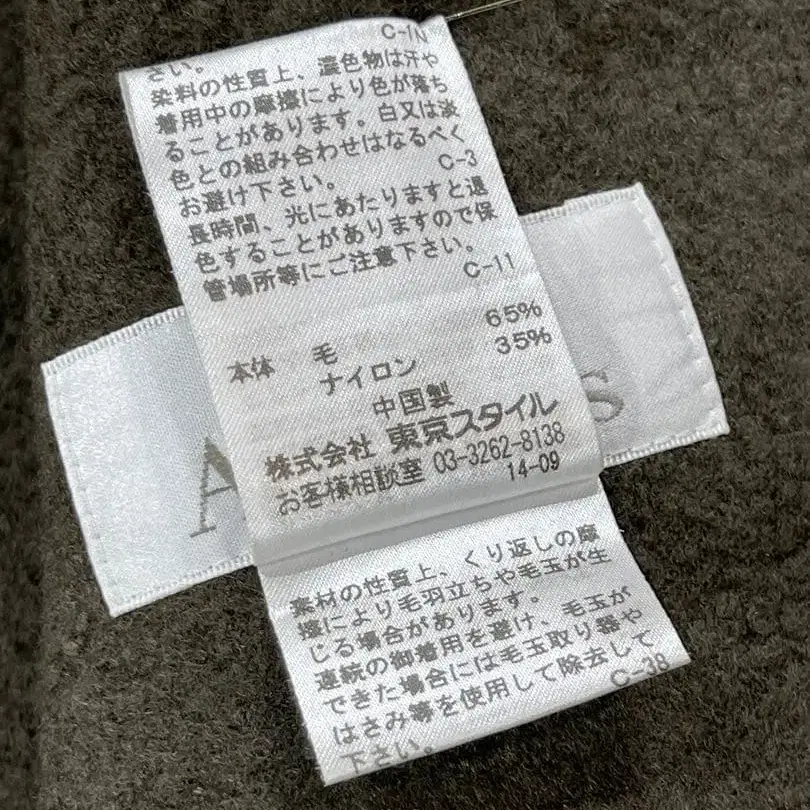 C-1N
さい。
染料の性質上、濃色物は汗や
着用中の摩擦により色が落ち
ることがあります。白又は淡
色との組み合わせはなるべく
お避け下さい。 C-3
長時間、光にあたりますと退
色することがありますので保
管場所等にご注意下さい。
C-11
本体 毛 65%
ナイロン 35%
中国製
株式会社 東京スタイル
お客様相談室 03-3262-8138
14-09
A
S
素材の性質上、くり返しの摩
擦により毛羽立ちや毛玉が生
じる場合があります。
連続の御着用を避け、毛玉が
できた場合には毛玉取り器や
はさみ等を使用して除去して
下さい。 C-38